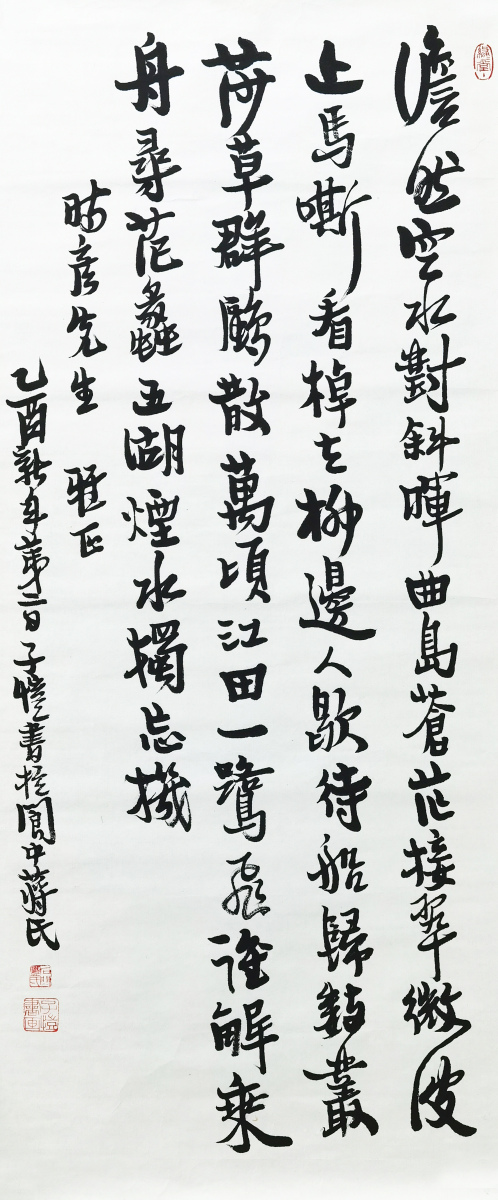 澹然空水對斜暉曲島蒼茫接翠微波
上馬嘶看棹去柳邊人歇待船歸數叢
莎草群鷗散萬頃江田一鷺飛誰解乘
舟尋范蠡五湖煙水獨忘機
彥先生 雅正
乙酉新年第二日子愷書於閬中蔣氏